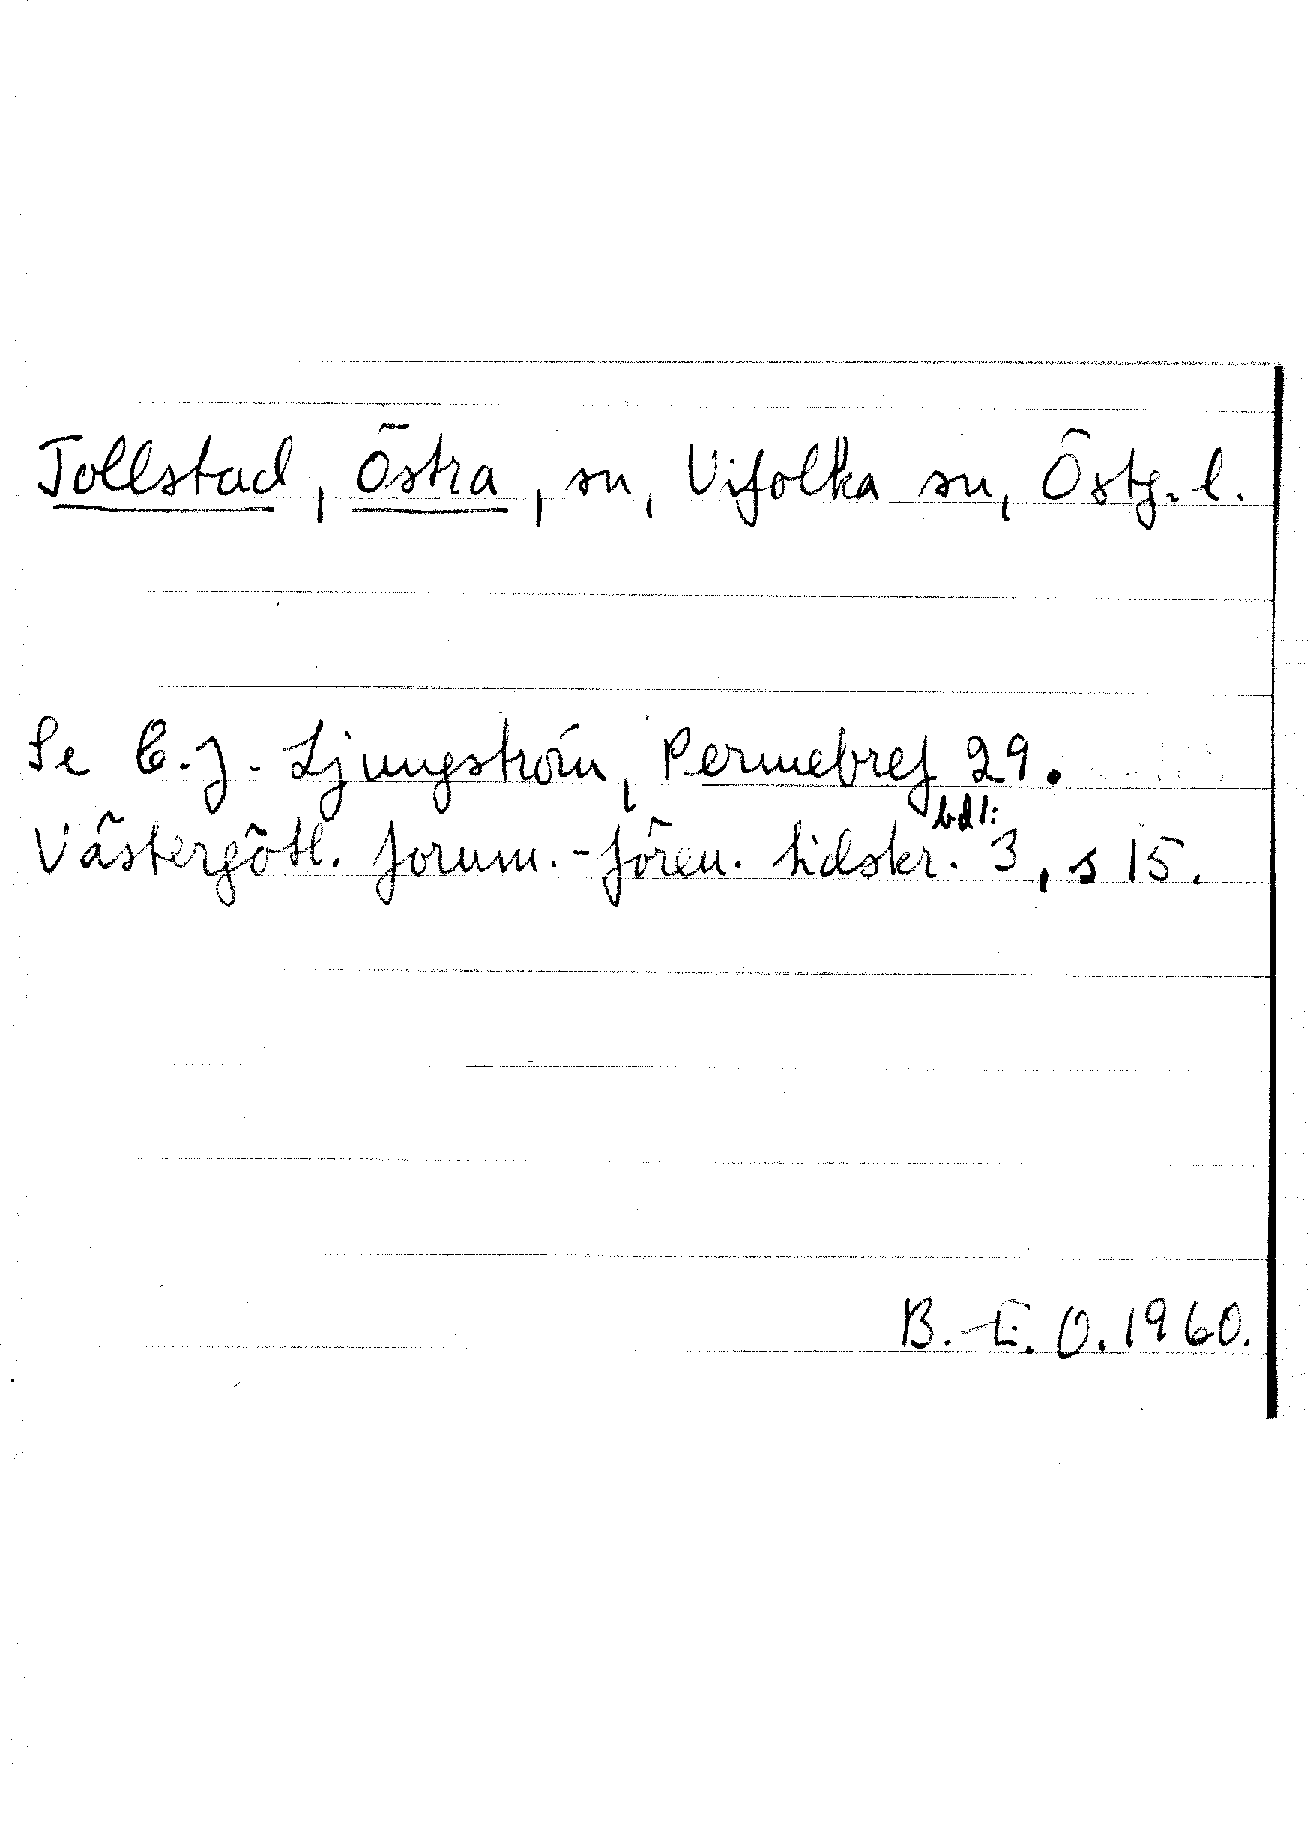 Tollstad, Östra, sn, Vifolka sn, Östg. l.
Se C.J. Ljungström, Permebref 29.
Västergötl. fornm.-fören. tidskr. bd 1: 3, s 15.
B.-E. O. 1960.